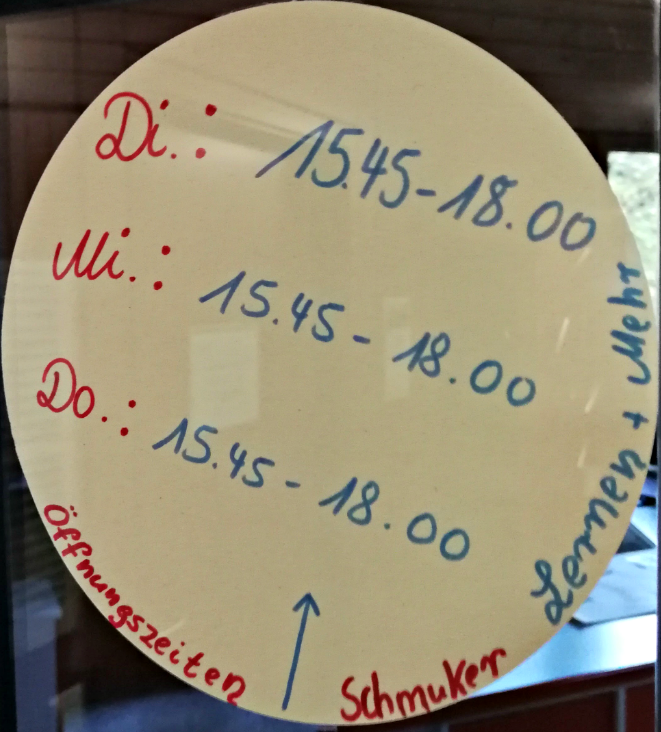 Di.: 15.45-18.00
Mi.: 15.45 - 18.00
Do.: 15.45 - 18.00
Öffnungszeiten
Schmuker
Lernen + Mehr